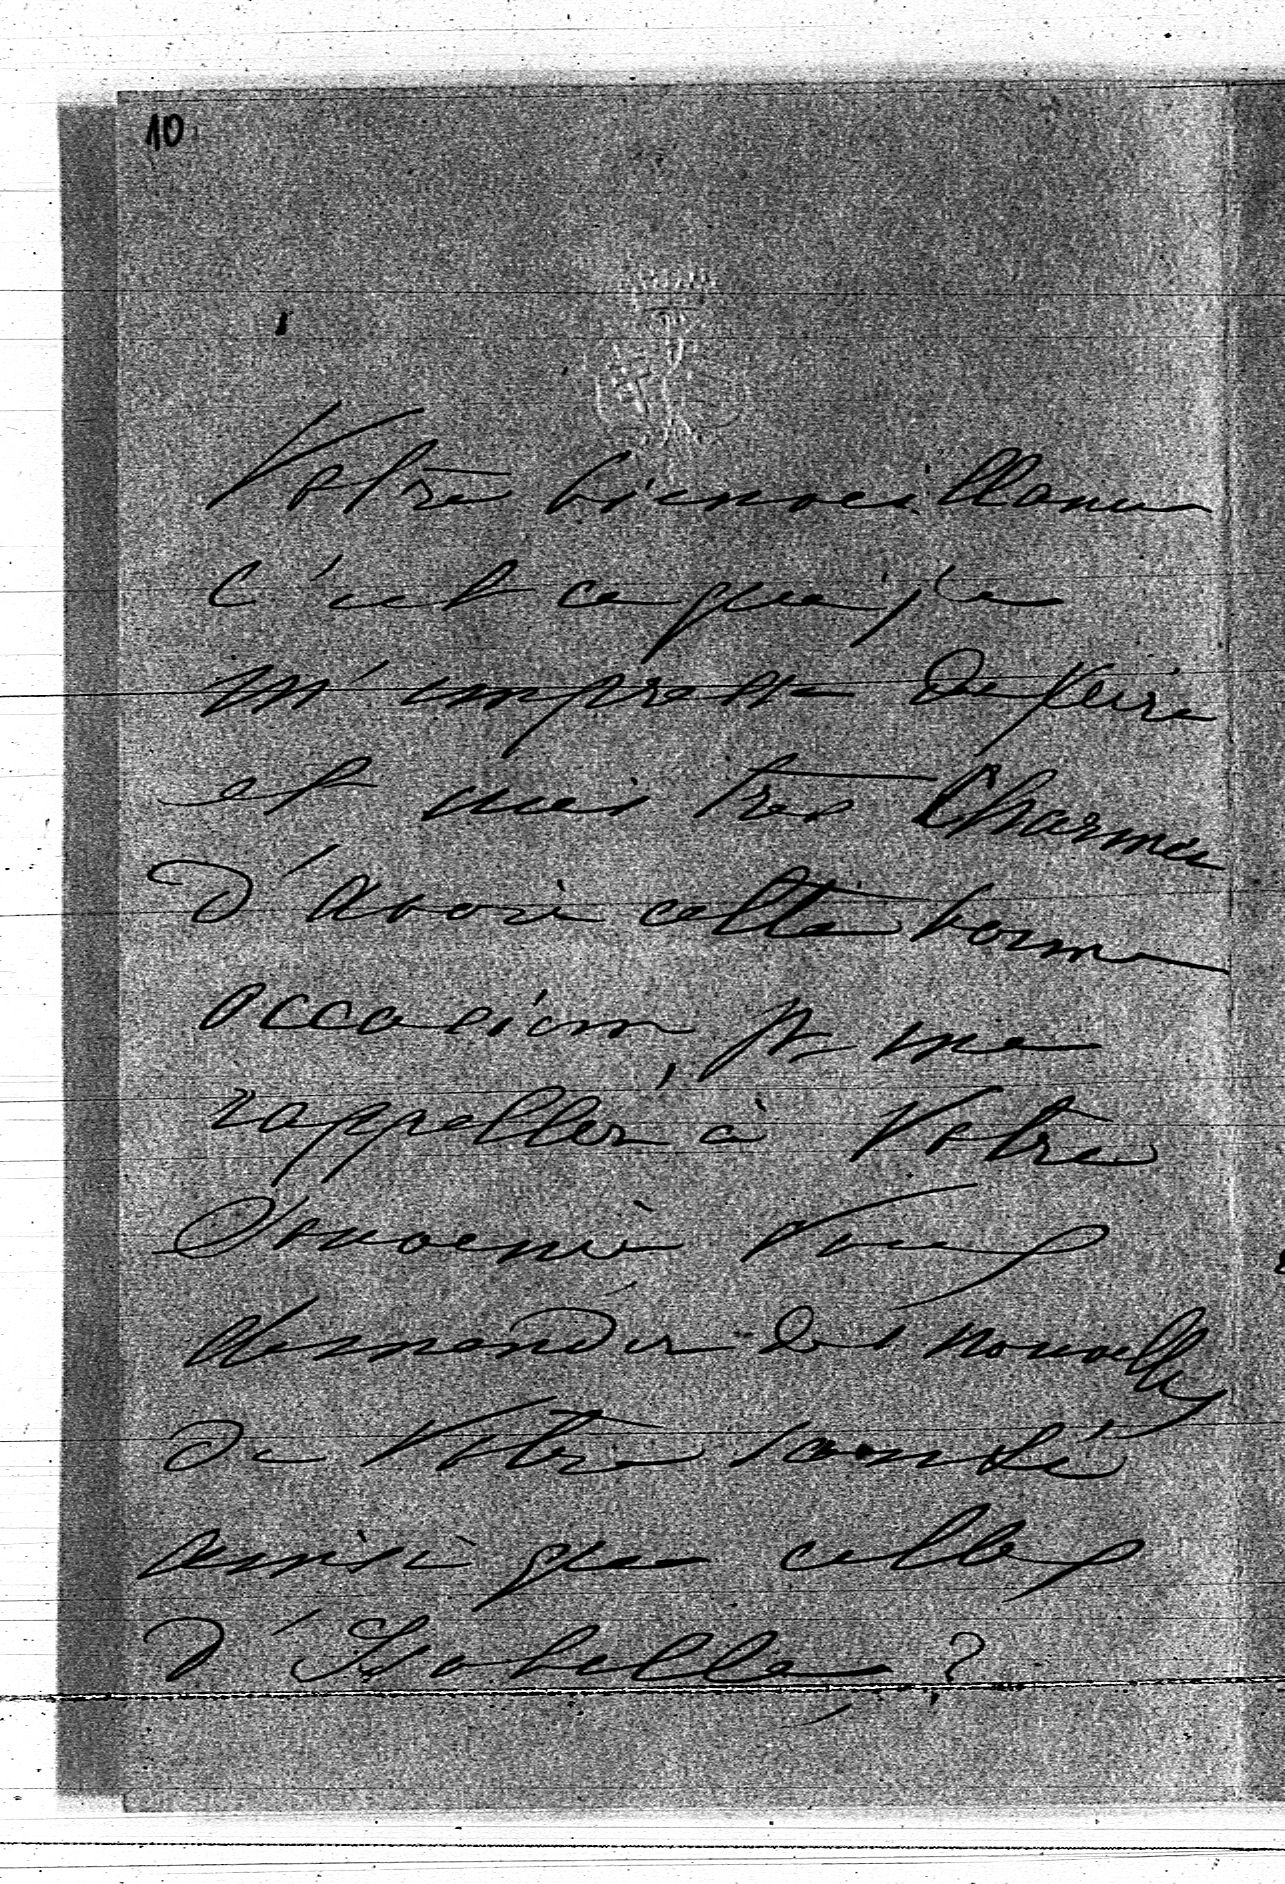 10
Votre bienveillance
c'est ce que je
m'empresse de faire
et suis très charmée
d'avoir cette bonne
occasion, pr me
rappeller à Votre
Souvenir Vous
demander des nouvelles
de Votre santé
ainsi que celle
d'Isabelle, ?